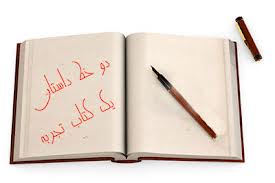 دو خط داستان
یک کتاب تجربه